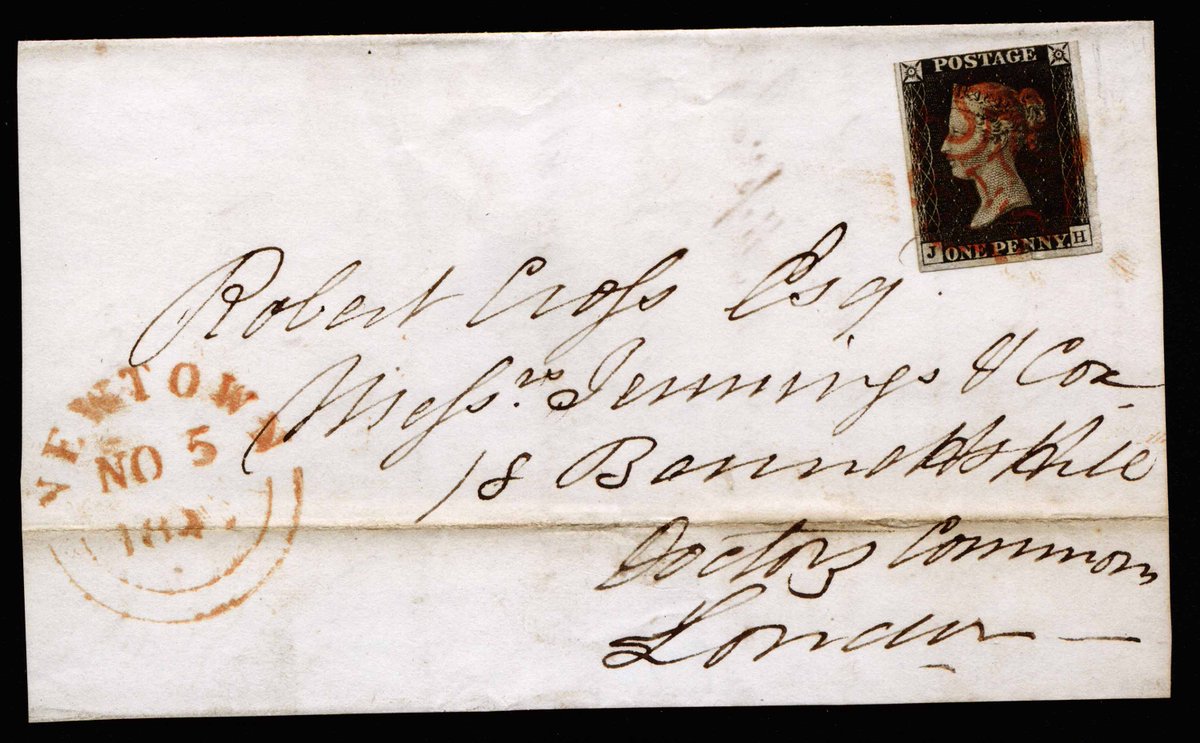 POSTAGE
J ONE PENNY H
Robert Croſs Esq.
Meſsrs. Jennings & Co
18 Bennetts Hill
Doctors Commons
London
NEWTOWN
NO 5